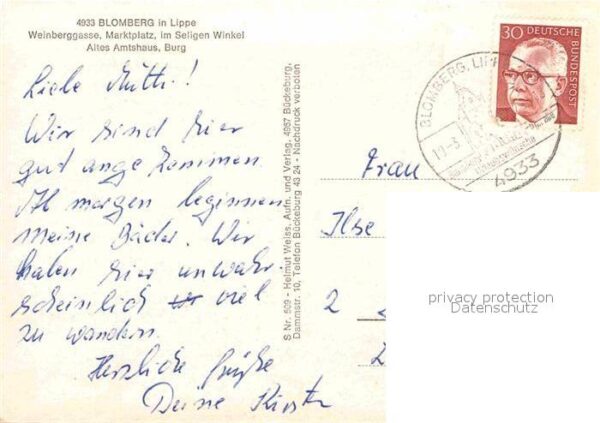 4933 BLOMBERG in Lippe
Weinberggasse, Marktplatz, im Seligen Winkel
Altes Amtshaus, Burg
Liebe Mutti!
Wir sind hier
gut angekommen
Ab morgen beginnen
meine Bäder. Wir
haben hier unwahr-
scheinlich viel
zu wandern.
Herzliche Grüße
Deine
S Nr. 509 - Helmut Weiss, Aufn. und Verlag, 4967 Bückeburg,
Dammstr. 10, Telefon Bückeburg 43 24 - Nachdruck verboten
30 DEUTSCHE
BUNDESPOST
BLOMBERG, LIPPE
19.-3.
4933
Frau
Ilse
2
privacy protection
Datenschutz